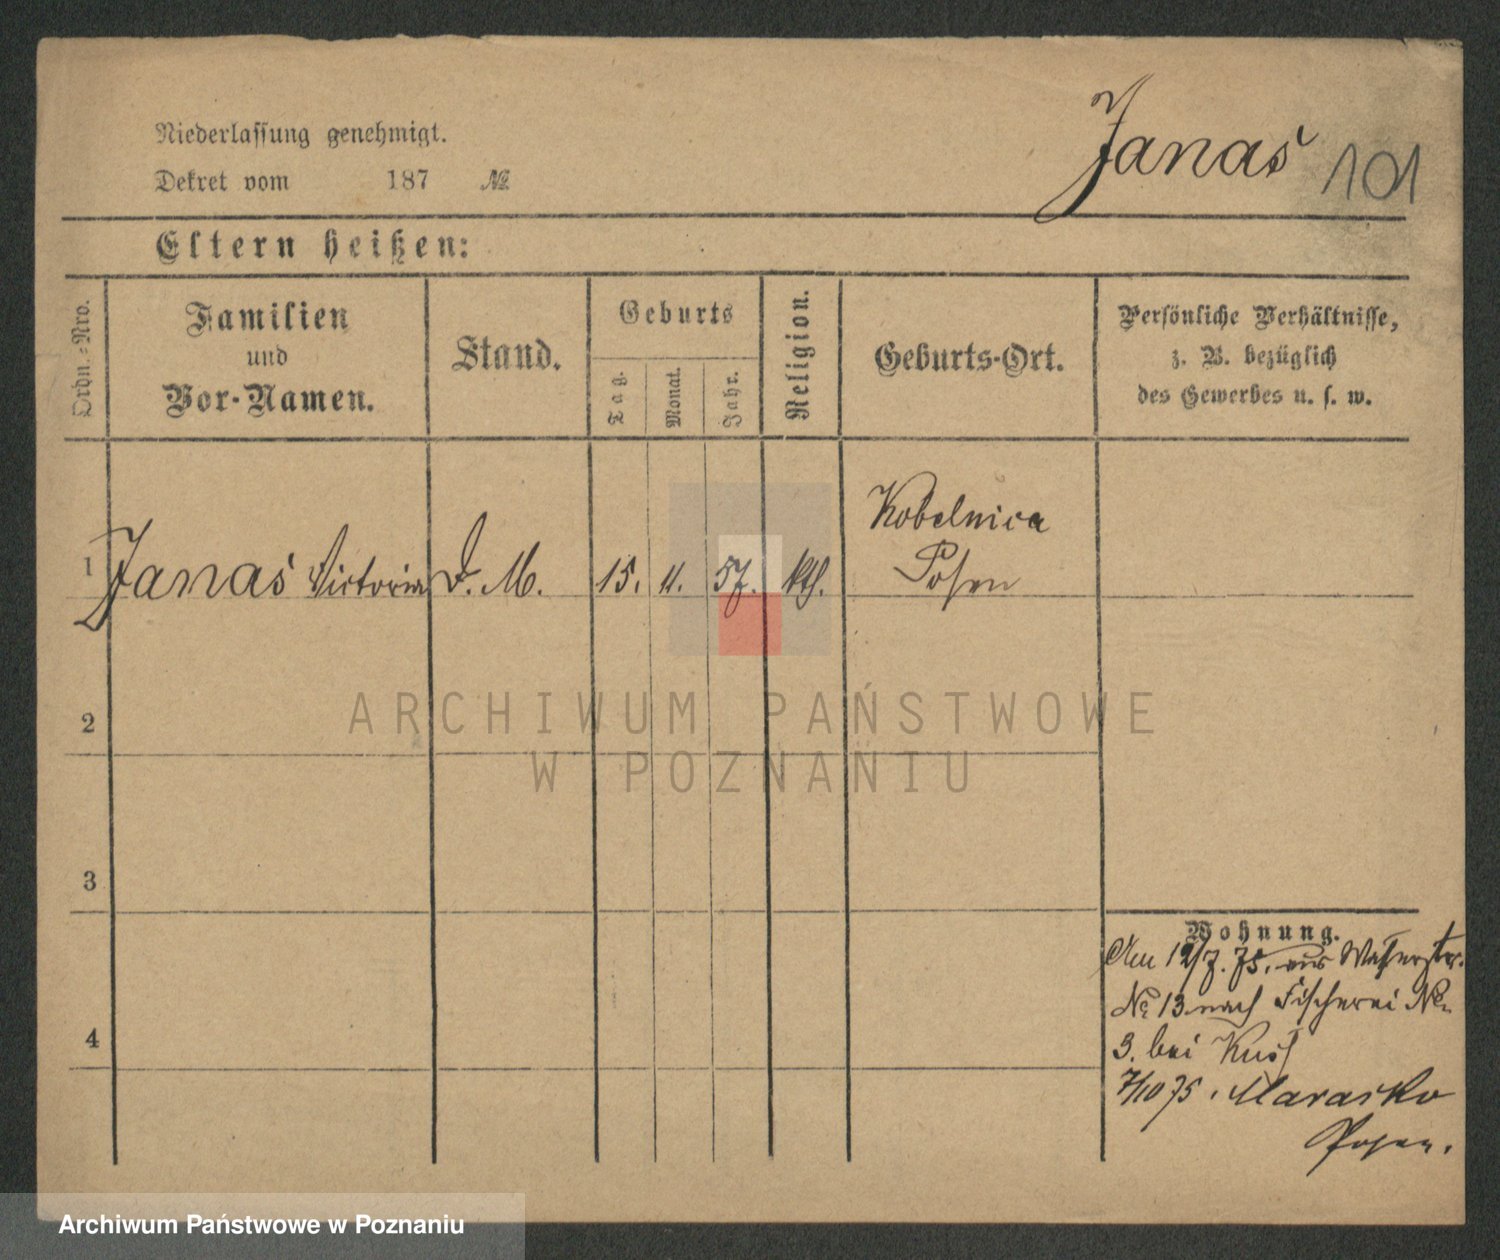 Janaś 101
Niederlassung genehmigt.
Dekret vom 187 №.
Eltern heißen:
Ordn.-Nro.
Familien
und
Vor-Namen.
Stand.
Geburts
Tag.
Monat.
Jahr.
Religion.
Geburts-Ort.
Persönliche Verhältnisse,
z. B. bezüglich
des Gewerbes u. s. w.
1 Janaś Victoria D. M. 15. 11. 57. kth. Kobelnica
Posen
2
3
4
Wohnung.
Am 19/7. 75. aus Wasserstr.
№ 13 nach Fischerei №
3. bei
7/10 75. Marasko
Posen.
ARCHIWUM PAŃSTWOWE
W POZNANIU
Archiwum Państwowe w Poznaniu